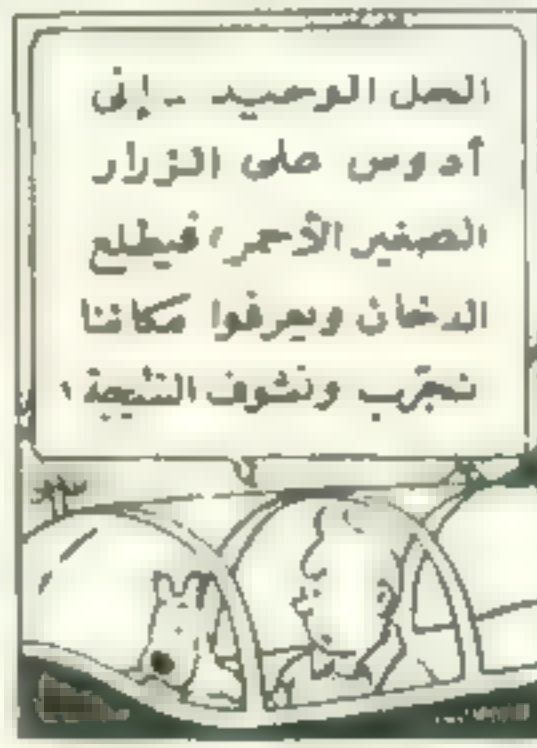 الحل الوحيد - إنى
أدوس على الزرار
الصغير الأحمر، فيطلع
الدخان ويعرفوا مكاننا
نجرّب ونشوف النتيجة !